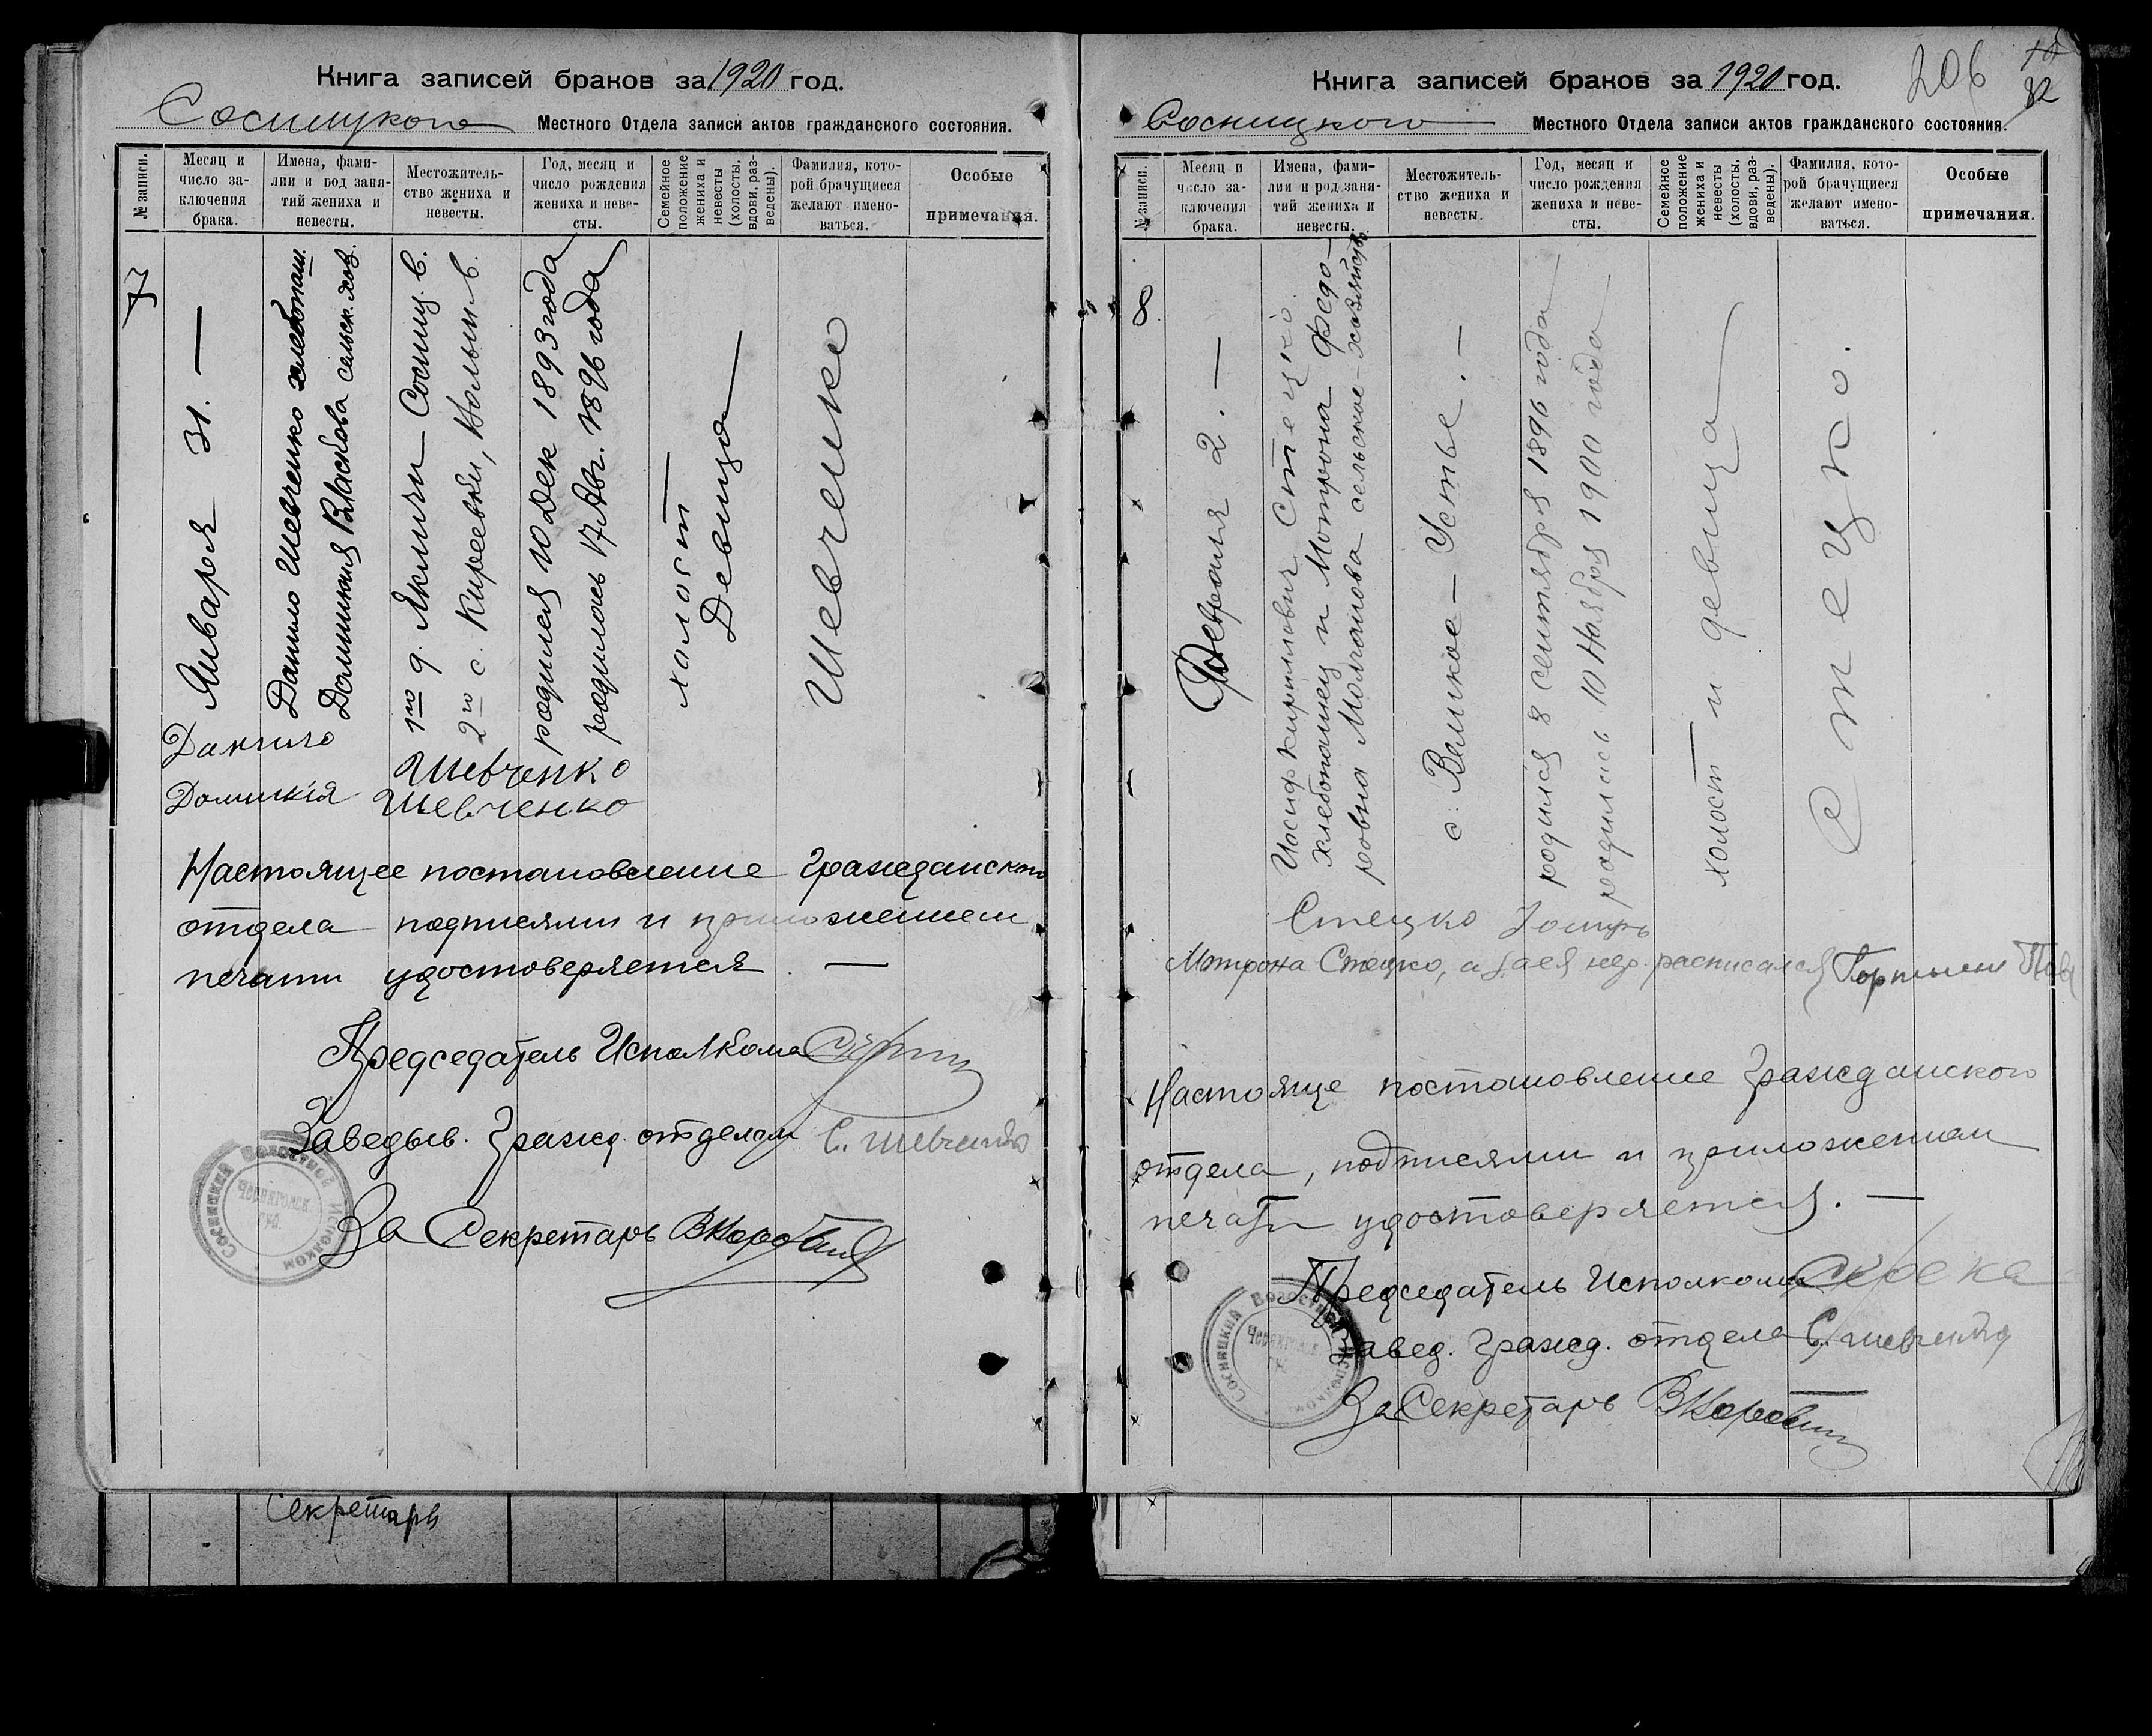 Книга записей браков за 1920 год.
Сосницкого Местного Отдела записи актов гражданского состояния.
№ записи.
Месяц и число за-
ключения брака.
Имена, фами-
лии и род заня-
тий жениха и
невесты.
Местожитель-
ство жениха и
невесты.
Год, месяц и
число рождения
жениха и неве-
сты.
Семейное
положение
жениха и
невесты
(холосты,
вдовы, раз-
ведены).
Фамилия, кото-
рой брачущиеся
желают имено-
ваться.
Особые
примечания.
7
Января 31. —
Данило Шевченко хлебопаш.
Доминикия Власова сельск. хоз.
1го д. Якличи Сосниц. в.
2го с. Киреевки, в.
родился 10 Дек 1893 года
родилась 17 Авг. 1896 года
холост —
Девица —
Шевченко
Данило Шевченко
Доминикiя Шевченко
Настоящее постановление Гражданского
отдела подписями и приложением
печати удостоверяется. —
Председатель Исполкома
Заведыв. Гражд. отделом С. Шевченко
За Секретарь
Сосницкий Волостной Исполком
Секретарь
Книга записей браков за 1920 год.
206
10
32
Сосницкого Местного Отдела записи актов гражданского состояния.
№ записи.
Месяц и
число за-
ключения
брака.
Имена, фами-
лии и род заня-
тий жениха и
невесты.
Местожитель-
ство жениха и
невесты.
Год, месяц и
число рождения
жениха и неве-
сты.
Семейное
положение
жениха и
невесты
(холосты,
вдовы, раз-
ведены).
Фамилия, кото-
рой брачущиеся
желают имено-
ваться.
Особые
примечания.
8.
Февраля 2. —
Иосиф Кириллович Стецко
хлебопашец и Мотрона Федо-
ровна сельское-хозяйств.
с. Великое — Устье. —
родился 8 сентября 1896 года —
родилась 10 Ноября 1900 года —
холост и девица —
Стецко.
Стецко
Мотрона Стецко, а за ея нер. расписался
Настояще постановление Гражданского
отдела, подписями и приложением
печати удостоверяется. —
Председатель Исполкома
Завед. Гражд. отдела С. Шевченко
За Секретарь
Сосницкий Волостной Исполком